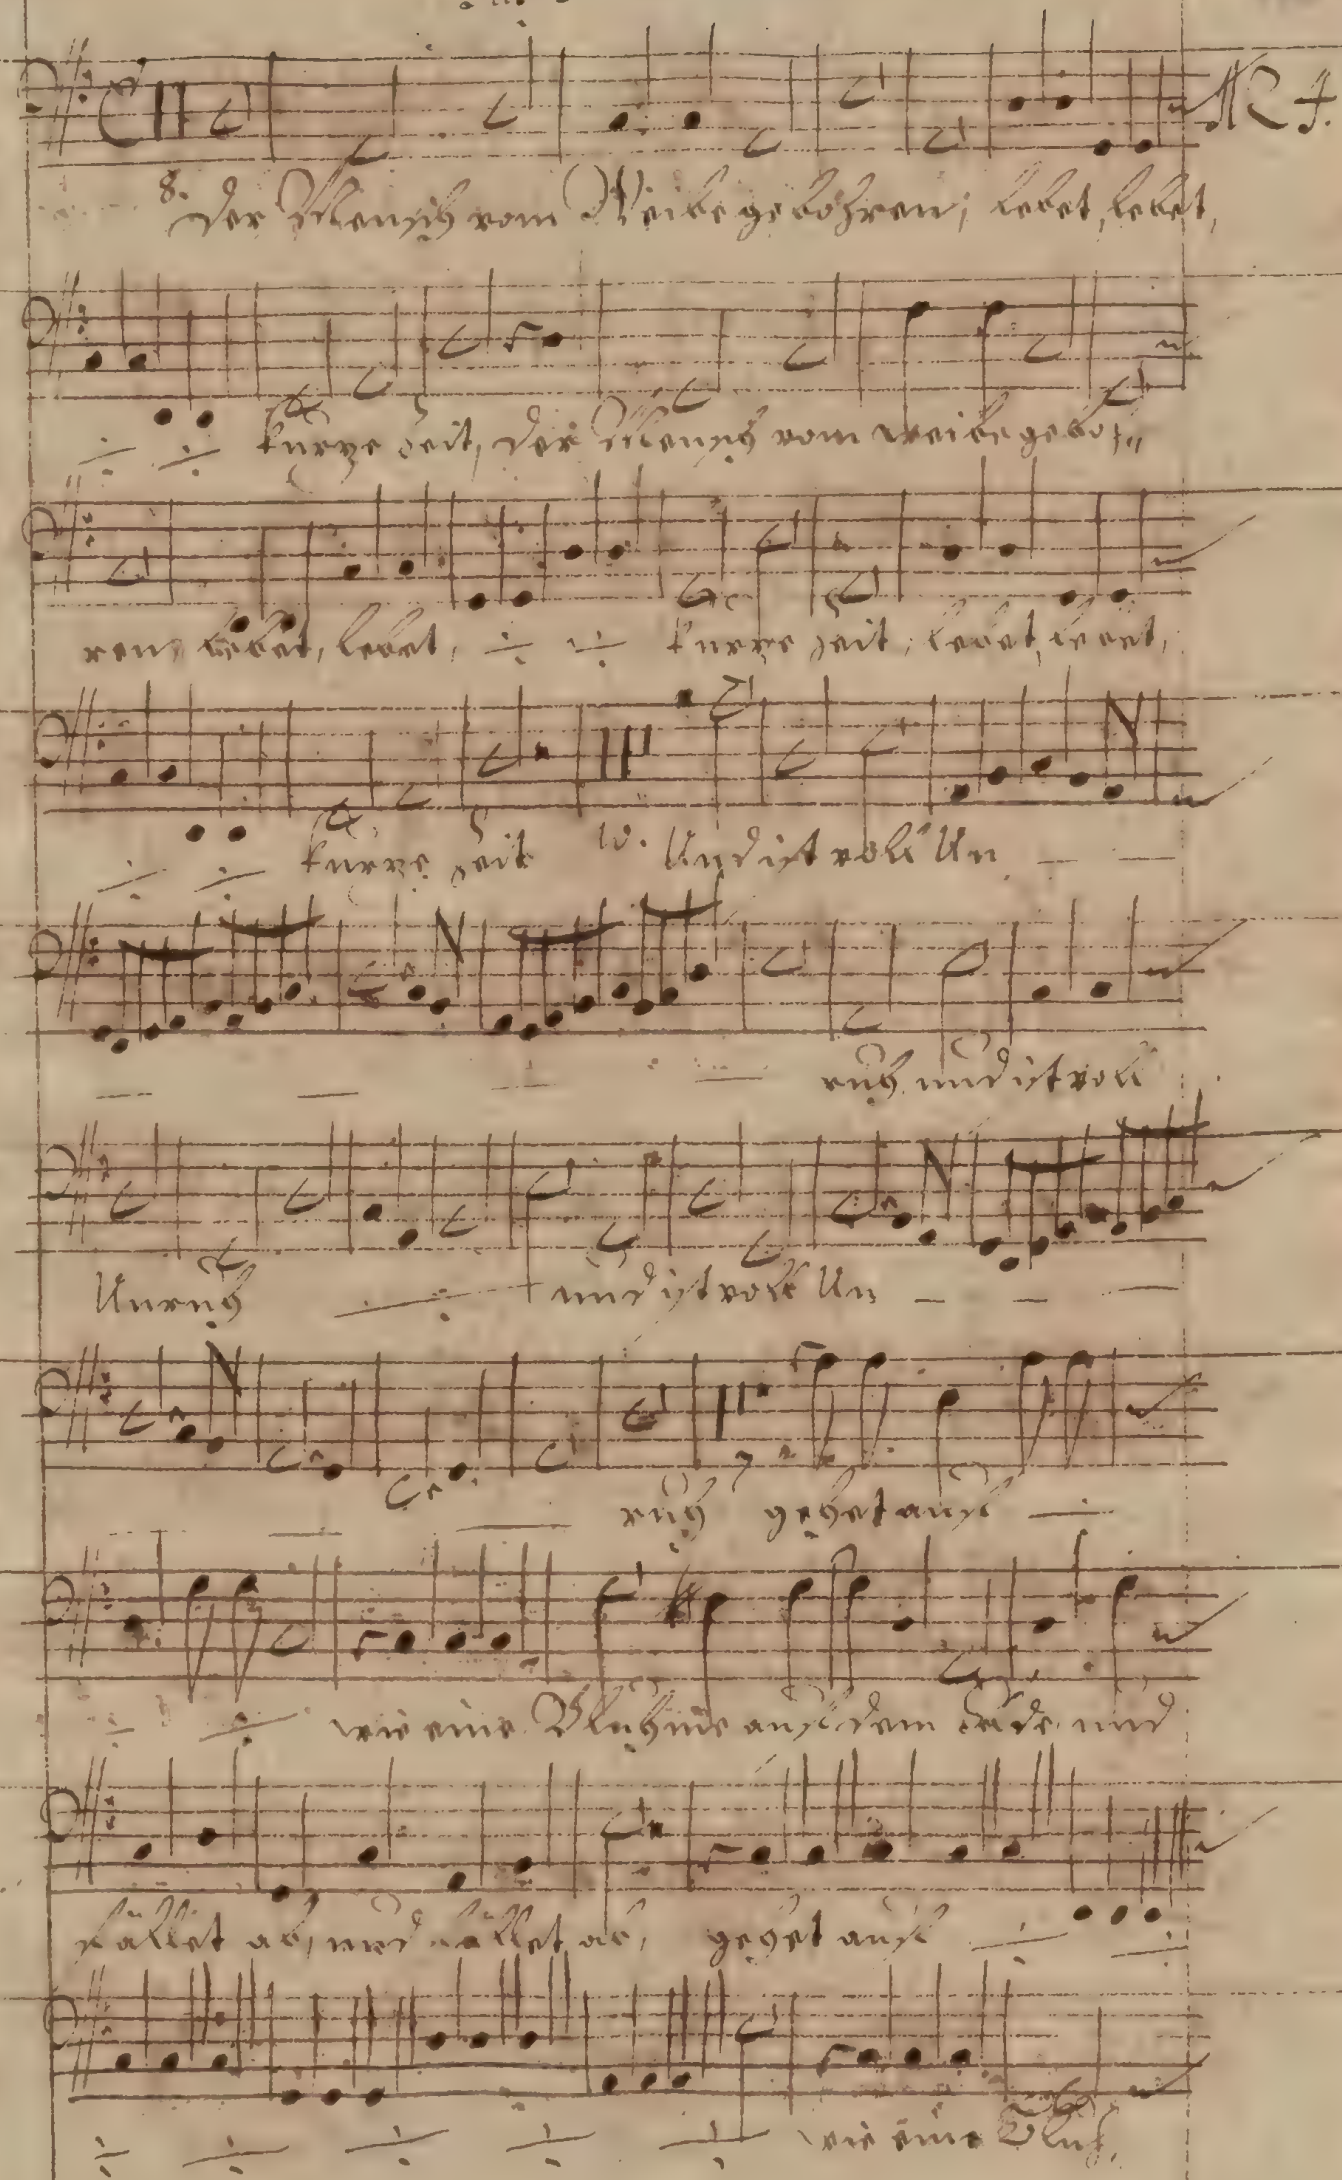 8. Der Mensch vom Weibe gebohren; lebet, lebet,
÷ ÷ kurze Zeit, der Mensch vom weibe geboh=
ren lebet, lebet, ÷ ÷ kurze Zeit, lebet, lebet,
÷ ÷ kurze Zeit 10. Und ist voll Un
ruh, und ist voll
Unruh ÷ und ist voll Un
ruh 7 gehet auf ÷
÷ ÷ wie eine Bluhme auf dem und
fället ab, und fället ab, gehet auf ÷ ÷
÷ ÷ ÷ ÷ ÷ wie eine Bluh